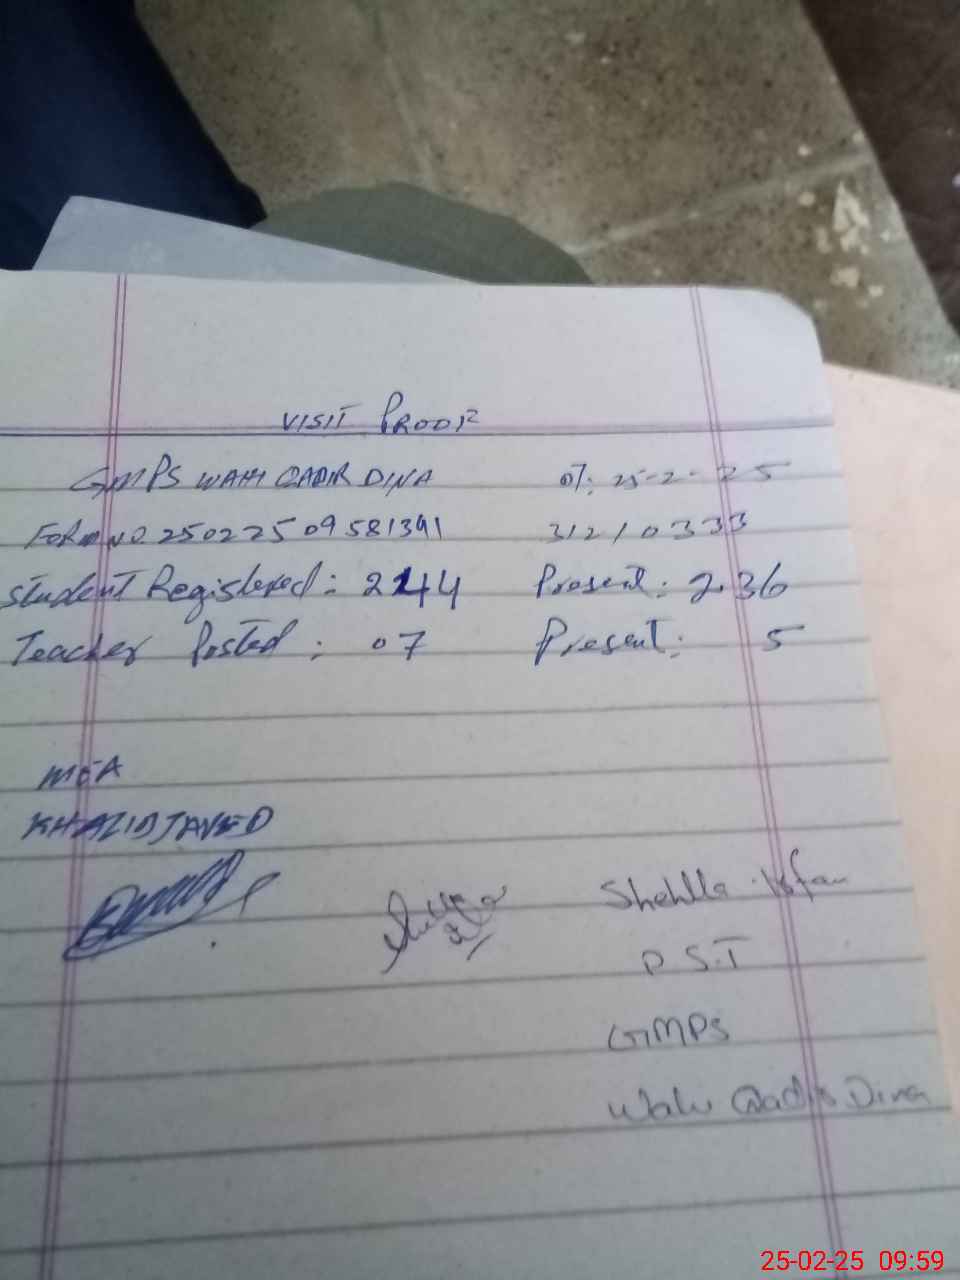 VISIT PROOF
GMPS WAHI QADIR DINA DT: 25-2-25
FORM NO. 25022509581391 31210333
Student Registered: 244 Present: 236
Teacher Posted: 07 Present: 5
MEA
KHALID JAVED
Shehlla Irfan
P.S.T
GMPS
Wahi Qadir Dina
25-02-25 09:59